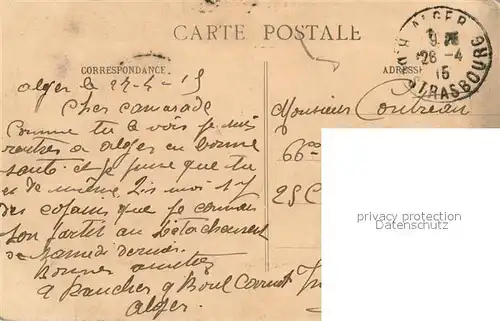 CARTE POSTALE
CORRESPONDANCE
ADRESSE
ALGER
RUE DE STRASBOURG
28-4
15
Alger le 27-4-15
Cher camarade
Comme tu le vois je suis
rentrés a alger en bonne
santé et je pense que tu
es de même Dis moi s'y
des copains que je connais
son partit au Détachement
de samedi dernier.
Bonnes amitiés
9 Boul Carnot
Alger.
Monsieur
66
25
privacy protection
Datenschutz